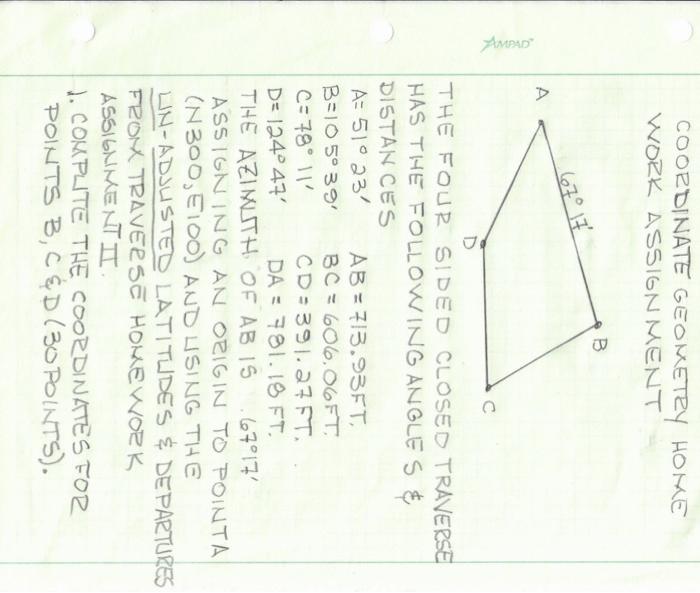 COORDINATE GEOMETRY HOME
WORK ASSIGNMENT
AMPAD
A
67°17'
B
D
C
THE FOUR SIDED CLOSED TRAVERSE
HAS THE FOLLOWING ANGLES &
DISTANCES
A= 51° 23' AB = 713.93FT.
B=105°39' BC = 606.06FT.
C=78° 11' CD = 391.27FT.
D=124°47' DA = 781.18FT.
THE AZIMUTH OF AB IS 67°17'
ASSIGNING AN ORIGIN TO POINT A
(N300, E100) AND USING THE
UN-ADJUSTED LATITUDES & DEPARTURES
FROM TRAVERSE HOMEWORK
ASSIGNMENT II.
1. COMPUTE THE COORDINATES FOR
POINTS B, C & D (30 POINTS).